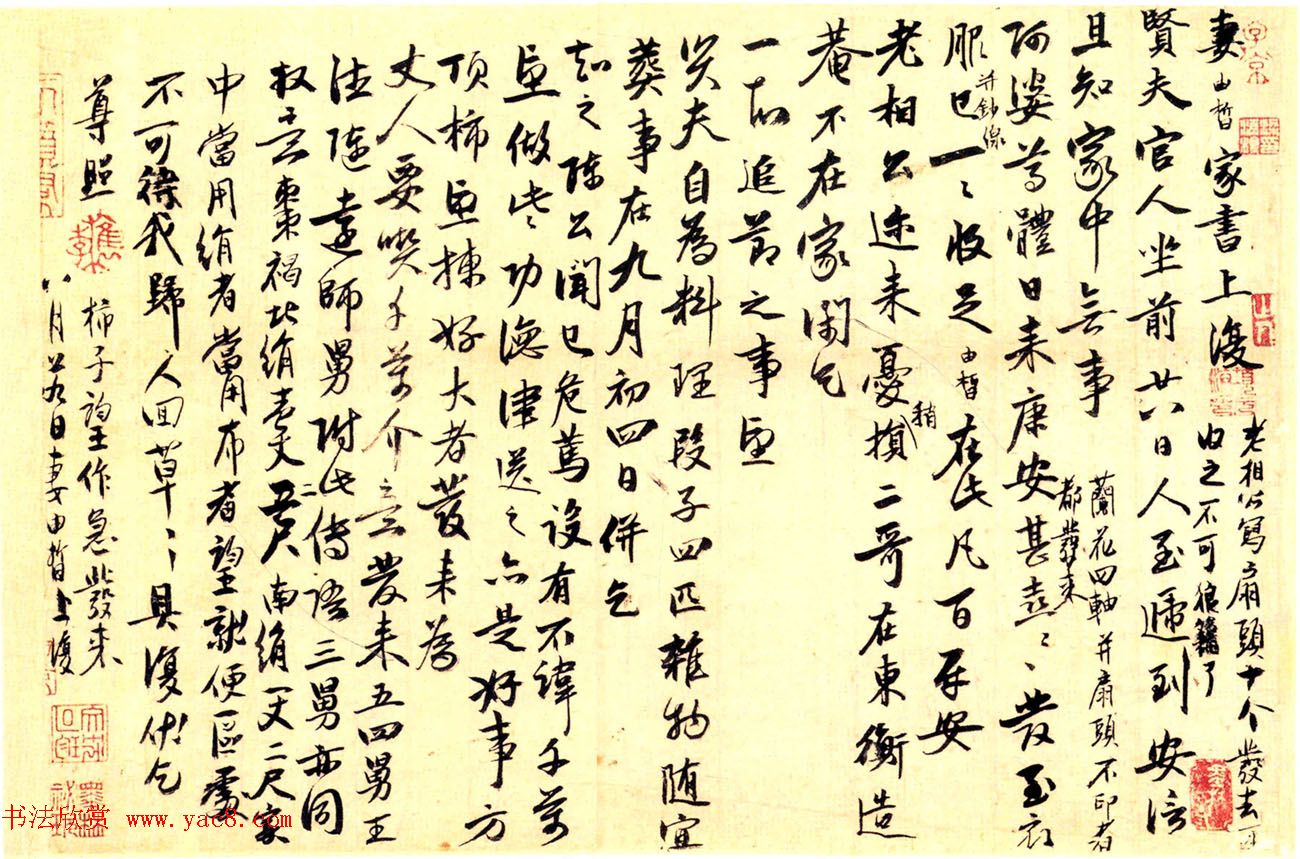 妻由皙家書上復
老相公寫扇頭十个發去可
收之不可狼籍了
賢夫官人坐前廿八日人至遞到安信
且知家中無事
蘭花四軸并扇頭不印者
都發來
阿婆尊體日來康安甚喜〻發至衣
服已并鈔線一〻收足由皙在此凡百平安
老相公迩来憂損稍二哥在東衡造
菴不在家閑乞
一知追節之事望
賢夫自為料理段子四匹雜物随宜
葬事在九月初四日併乞
知之陳公聞已危篤設有不諱千萬
與做些功德津送之亦是好事方
頂柿望揀好大者發来為
丈人要喫千萬介意發来五四舅王
法隨遠師舅附此傳語三舅亦同
叔言棗褐北絹壹丈五尺南絹一丈二尺家
中當用絹者當用布者望就便區處
不可待我歸人回草〻具復伏乞
尊照柿子望作急發来
八月廿九日妻由皙上復
书法欣赏 www.yac8.com